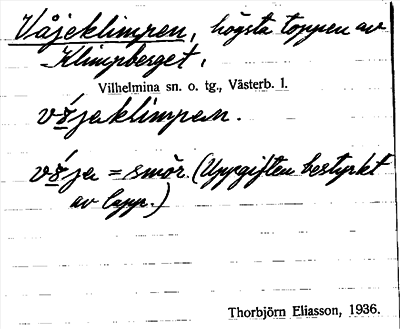 Våjeklimpen, högsta toppen av
Klimpberget,
Vilhelmina sn. o. tg., Västerb. l.
vǻjaklimpen.
vǻja = smör. (Uppgiften bestyrkt
av lapp.)
Thorbjörn Eliasson, 1936.